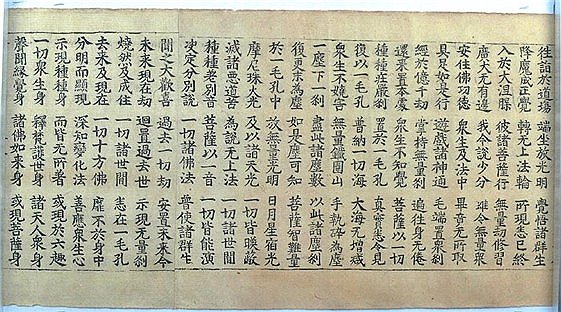 往詣於道場 端坐放光明 覺悟諸群生
降魔成正覺 轉无上法輪 所現悉已終
入於大涅槃 彼諸菩薩行 無量劫修習
廣大无有邊 我今說少分 難令無量衆
安住佛功德 衆生及法中 畢竟无所取
具足如是行 遊戲諸神通 毛端置衆剎
經於億千劫 掌持無量剎 遍往身无倦
還來置本處 衆生不知覺 菩薩以一切
種種莊嚴剎 置於一毛孔 真實悉令見
復以一毛孔 普納一切海 大海无增減
衆生不嬈害 無量鐵圍山 手執碎為塵
一塵下一剎 盡此諸塵數 以此諸塵剎
復更末為塵 如是塵可知 菩薩智難量
於一毛孔中 放無量光明 日月星宿光
摩尼珠火光 及以諸天光 一切皆暎蔽
滅諸惡道苦 為說无上法 一切諸世間
種種差別音 菩薩以一音 一切皆能演
決定分別說 一切諸佛法 普使諸群生
聞之大歡喜 過去一切劫 安置未來今
未來現在劫 迴置過去世 示現无量剎
燒然及成住 一切諸世間 悉在一毛孔
去來及現在 一切十方佛 靡不於身中
分明而顯現 深知變化法 善應衆生心
示現種種身 而皆无所著 或現於六趣
一切衆生身 釋梵護世身 諸天人衆身
聲聞緣覺身 諸佛如來身 或現菩薩身